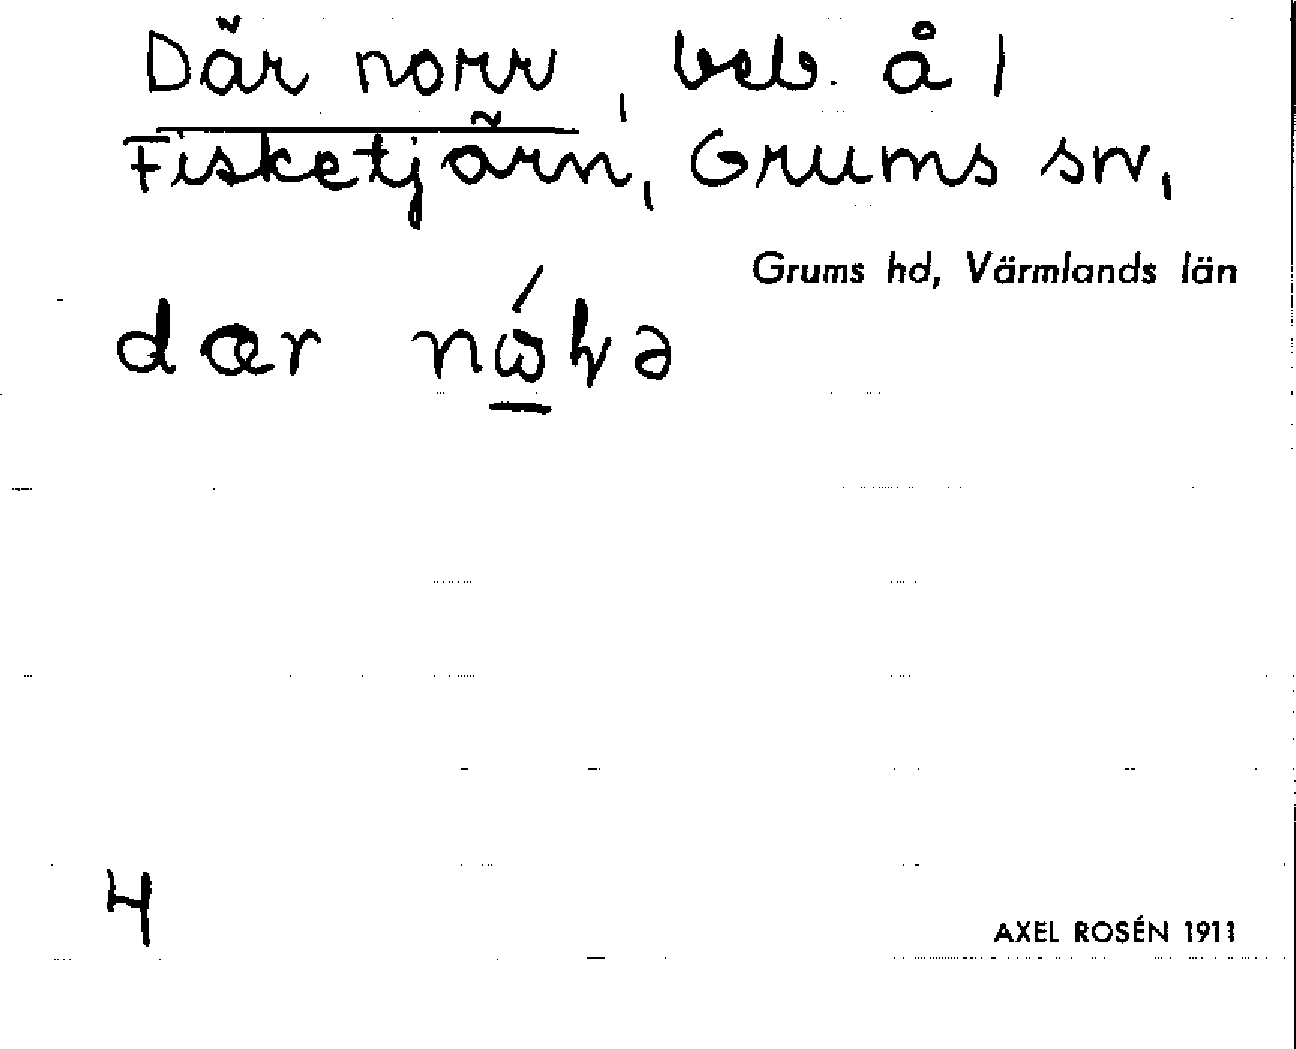 Där norr, beb. å 1
Fisketjärn, Grums sn,
Grums hd, Värmlands län
dær
4
AXEL ROSÉN 1911